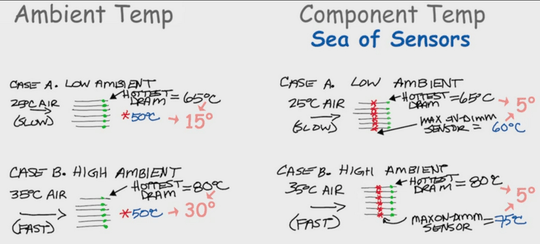 Ambient Temp
CASE A. LOW AMBIENT
25°C AIR
(SLOW)
HOTTEST DRAM = 65°C
*50°C → 15°
CASE B. HIGH AMBIENT
35°C AIR
(FAST)
HOTTEST DRAM = 80°C
*50°C → 30°
Component Temp
Sea of Sensors
CASE A. LOW AMBIENT
25°C AIR
(SLOW)
HOTTEST DRAM = 65°C
→ 5°
MAX ON-DIMM
SENSOR = 60°C
CASE B. HIGH AMBIENT
35°C AIR
(FAST)
HOTTEST DRAM = 80°C
→ 5°
MAX ON-DIMM
SENSOR = 75°C